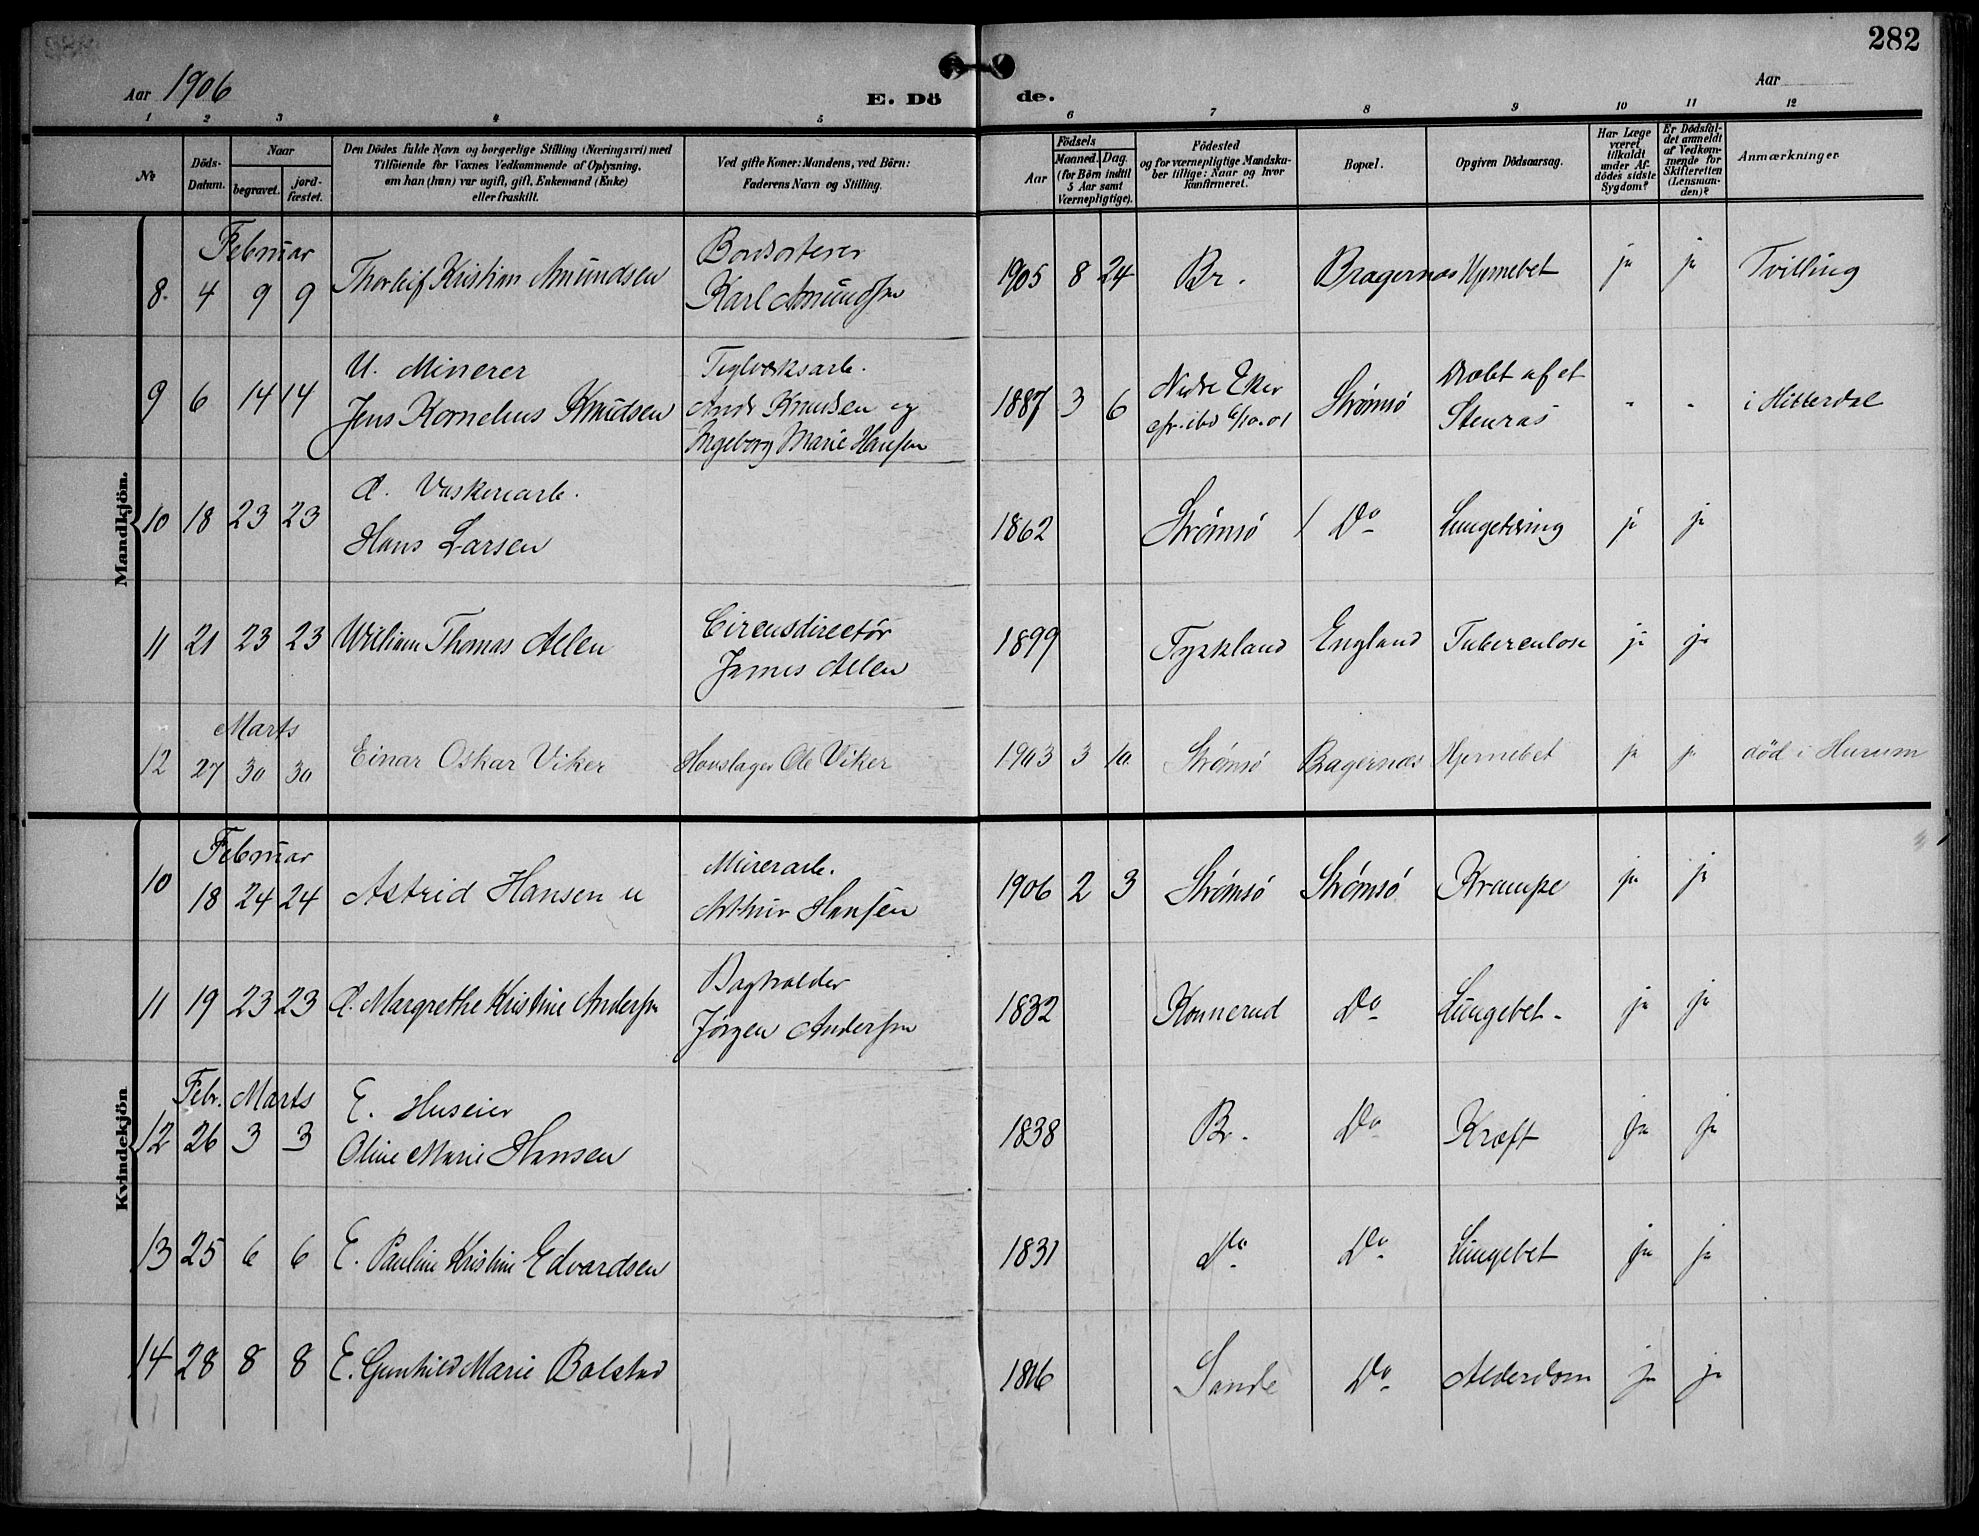 282
Aar 1906
E. Dö de.
Aar
1 2 3 4 5 6 7 8 9 10 11 12
№
Döds-Datum.
Naar
begravet.
jord-fæstet.
Den Dödes fulde Navn og borgerlige Stilling (Næringsvei) med
Tilföiende for Voxnes Vedkommende af Oplysning,
om han (hun) var ugift, gift, Enkemand (Enke)
eller fraskilt.
Ved gifte Koner: Mandens, ved Börn:
Faderens Navn og Stilling.
Födsels
Aar
Maaned.
Dag.
(for Börn indtil
5 Aar samt
Værnepligtige).
Födested
og for værnepligtige Mandska-
ber tillige: Naar og hvor
konfirmeret.
Bopæl.
Opgiven Dödsaarsag.
Har Læge
været
tilkaldt
under Af-
dödes sidste
Sygdom?
Er Dödsfal-
det anmeldt
af Vedkom-
mende for
Skifteretten
(Lensman-
den)?
Anmærkninger
Mandkjön.
Februar
8. 4 9 9 Thorleif Kristian Amundsen
Bordsorterer
Karl Amundsen
1905 8 24 Br. Bragernæs Hjernebet ja ja Tvilling
9 6 14 14
U. Minerer
Jens Kornelius Knudsen
Teglverksarb.
Knudsen og
Ingeborg Marie Hansen
1887 3 6
Nedre Eker
cfr. ibd 6/10.01
Strømsø
Dræbt af et
Stenras
" " i Hitterdal
10 18 23 23
Hans Larsen
1862 Strømsø / Do Lungetæring ja ja
11 21 23 23 William Thomas Allen
Circusdirectör
James Allen
1899 Tyskland England Tuberculose ja ja
Marts
12 27 30 30 Einar Oskar Viker
Hovslager Ole Viker
1903 3 10. Strømsø Bragernæs Hjernebet ja ja död i Hurum
Kvindekjön
Februar
10 18 24 24 Astrid Hansen u
Murerarb.
Arthur Hansen
1906 2 3 Strømsø Strømsø Krampe ja ja
11 19 23 23 Margrethe Kristine Andersen
Jörgen Andersen
1832 Konnerud Do Lungebet. ja ja
Febr. Marts
12 26 3 3
E. Huseier
Oline Marie Hansen
1838 Br. Do Kræft ja ja
13 25 6 6 E. Pauline Kristine Edvardsen
1831 Do Do Lungebet ja ja
14 28 8 8 E. Gunhild Marie Bolstad
1816 Sande Do Alderdom ja ja